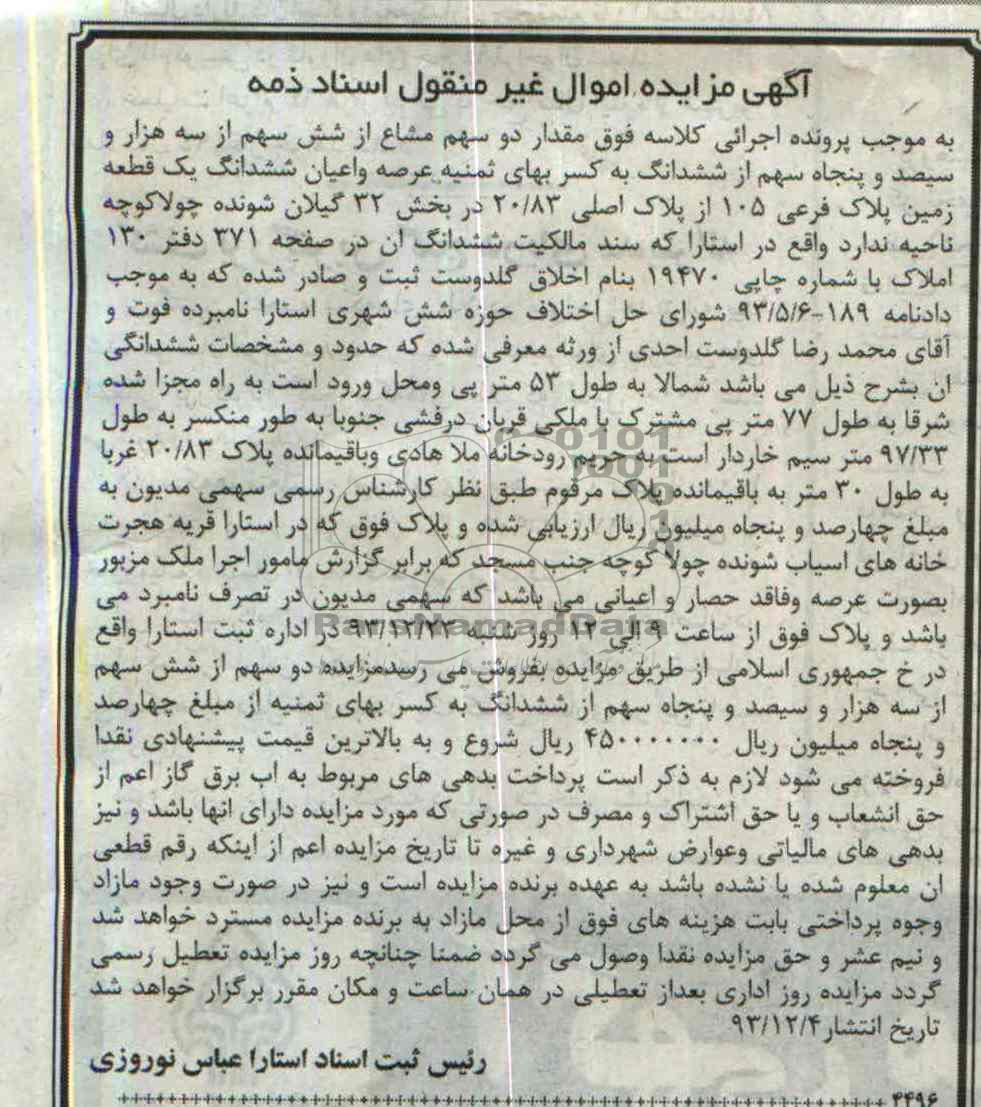 آگهی مزایده اموال غیر منقول اسناد ذمه
به موجب پرونده اجرائی کلاسه فوق مقدار دو سهم مشاع از شش سهم از سه هزار و
سیصد و پنجاه سهم از ششدانگ به کسر بهای ثمنیه عرصه واعیان ششدانگ یک قطعه
زمین پلاک فرعی ۱۰۵ از پلاک اصلی ۲۰/۸۳ در بخش ۳۲ گیلان شونده چولاکوچه
ناحیه ندارد واقع در استارا که سند مالکیت ششدانگ ان در صفحه ۳۷۱ دفتر ۱۳۰
املاک با شماره چاپی ۱۹۴۷۰ بنام اخلاق گلدوست ثبت و صادر شده که به موجب
دادنامه ۱۸۹-۹۳/۵/۶ شورای حل اختلاف حوزه شش شهری استارا نامبرده فوت و
آقای محمد رضا گلدوست احدی از ورثه معرفی شده که حدود و مشخصات ششدانگی
ان بشرح ذیل می باشد شمالا به طول ۵۳ متر پی ومحل ورود است به راه مجزا شده
شرقا به طول ۷۷ متر پی مشترک با ملکی قربان درفشی جنوبا به طور منکسر به طول
۹۷/۳۳ متر سیم خاردار است به حریم رودخانه ملا هادی وباقیمانده پلاک ۲۰/۸۳ غربا
به طول ۳۰ متر به باقیمانده پلاک مرقوم طبق نظر کارشناس رسمی سهمی مدیون به
مبلغ چهارصد و پنجاه میلیون ریال ارزیابی شده و پلاک فوق که در استارا قریه هجرت
خانه های اسیاب شونده چولا کوچه جنب مسجد که برابر گزارش مامور اجرا ملک مزبور
بصورت عرصه وفاقد حصار و اعیانی می باشد که سهمی مدیون در تصرف نامبرد می
باشد و پلاک فوق از ساعت ۹ الی ۱۲ روز شنبه در اداره ثبت استارا واقع
در خ جمهوری اسلامی از طریق مزایده بفروش می رسدمزایده دو سهم از شش سهم
از سه هزار و سیصد و پنجاه سهم از ششدانگ به کسر بهای ثمنیه از مبلغ چهارصد
و پنجاه میلیون ریال ۴۵۰۰۰۰۰۰۰ ریال شروع و به بالاترین قیمت پیشنهادی نقدا
فروخته می شود لازم به ذکر است پرداخت بدهی های مربوط به اب برق گاز اعم از
حق انشعاب و یا حق اشتراک و مصرف در صورتی که مورد مزایده دارای انها باشد و نیز
بدهی های مالیاتی وعوارض شهرداری و غیره تا تاریخ مزایده اعم از اینکه رقم قطعی
ان معلوم شده یا نشده باشد به عهده برنده مزایده است و نیز در صورت وجود مازاد
وجوه پرداختی بابت هزینه های فوق از محل مازاد به برنده مزایده مسترد خواهد شد
و نیم عشر و حق مزایده نقدا وصول می گردد ضمنا چنانچه روز مزایده تعطیل رسمی
گردد مزایده روز اداری بعداز تعطیلی در همان ساعت و مکان مقرر برگزار خواهد شد
تاریخ انتشار ۹۳/۱۲/۴
رئیس ثبت اسناد استارا عباس نوروزی
۴۴۹۶
ParsNamadData